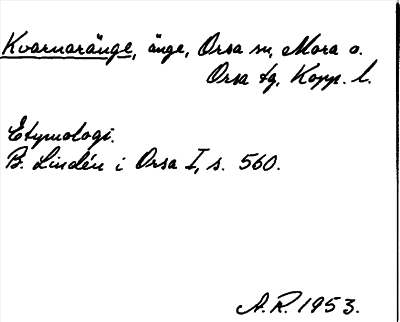 Kvarnaränge, änge, Orsa sn, Mora o.
Orsa tg, Kopp. l.
Etymologi.
B. Lindén i Orsa I, s. 560.
A.R. 1953.